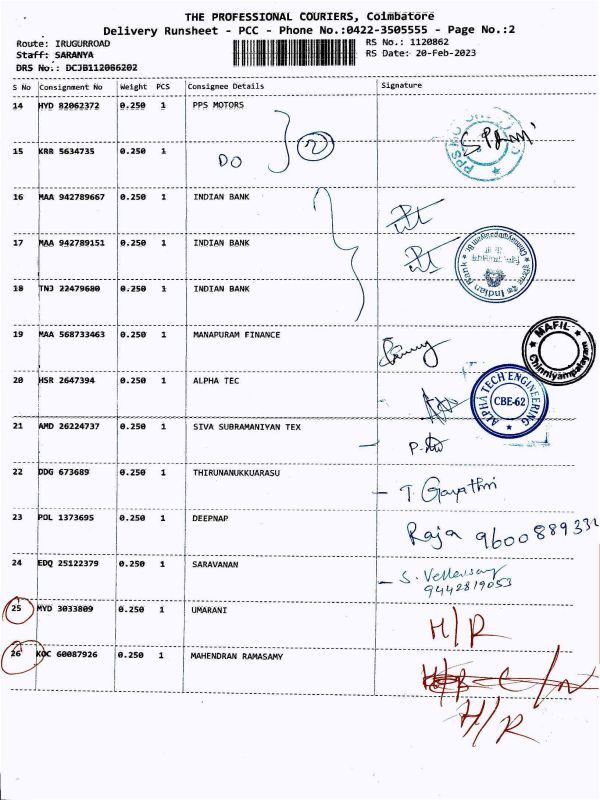 THE PROFESSIONAL COURIERS, Coimbatore
Delivery Runsheet - PCC - Phone No.:0422-3505555 - Page No.:2
Route: IRUGURROAD RS No.: 1120862
Staff: SARANYA RS Date: 20-Feb-2023
DRS No.: DCJB112086202
S No Consignment No Weight PCS Consignee Details Signature
14 HYD 82062372 0.250 1 PPS MOTORS
2
15 KRR 5634735 0.250 1
DO
16 MAA 942789667 0.250 1 INDIAN BANK
17 MAA 942789151 0.250 1 INDIAN BANK
Indian Bank
18 TNJ 22479680 0.250 1 INDIAN BANK
19 MAA 568733463 0.250 1 MANAPURAM FINANCE
MAFIL
Chinniyampalayam
20 HSR 2647394 0.250 1 ALPHA TEC
ALPHA TECH ENGINEERING
CBE-62
21 AMD 26224737 0.250 1 SIVA SUBRAMANIYAN TEX
22 DDG 673689 0.250 1 THIRUNANUKKUARASU
- T. Gayathri
23 POL 1373695 0.250 1 DEEPNAP
Raja 9600889332
24 EDQ 25122379 0.250 1 SARAVANAN
- S. Vellaisamy
9442819053
25 MYD 3033809 0.250 1 UMARANI
H/R
26 KOC 60087926 0.250 1 MAHENDRAN RAMASAMY
H/R